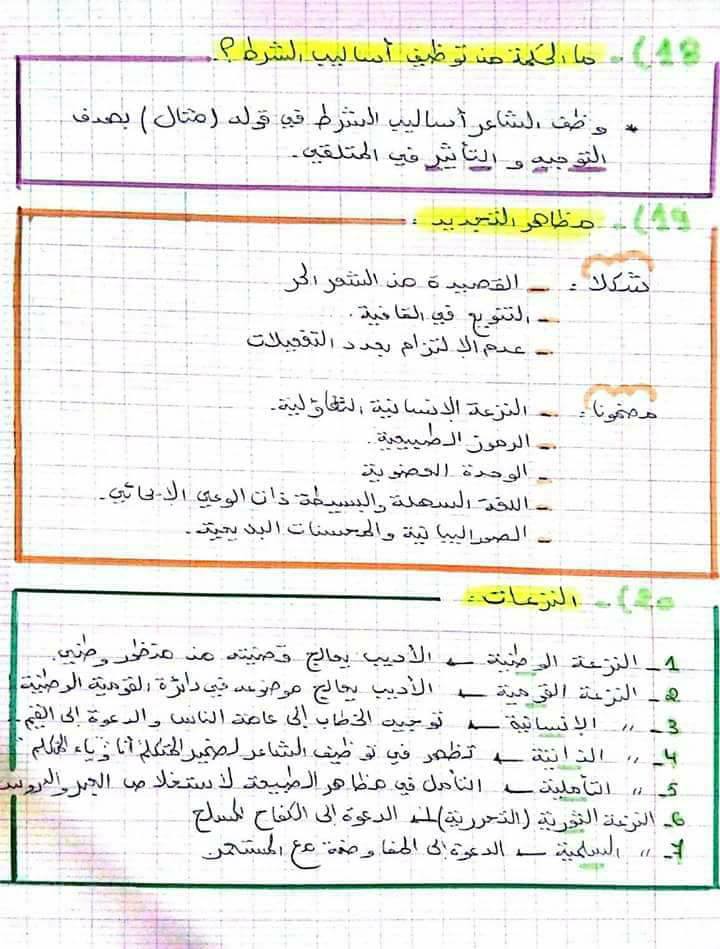 18) - ما الحكمة من توظيف أساليب الشرط ؟
* وظف الشاعر أساليب الشرط في قوله (مثال) بهدف
التوجيه و التأثير في المتلقي.
19) - مظاهر التجديد :
شكلا : - القصيدة من الشعر الحر
- التنويع في القافية .
- عدم الالتزام بعدد التفعيلات
مضمونا : - النزعة الإنسانية التفاؤلية.
- الرموز الطبيعية.
- الوحدة العضوية
- اللغة السهلة والبسيطة ذات الوعي الإيحائي.
- الصور البيانية والمحسنات البديعية.
20) - النزعات :
1- النزعة الوطنية ← الأديب يعالج قضيته من منظور وطني.
2- النزعة القومية ← الأديب يعالج موضوعه في دائرة القومية الوطنية
3- // الإنسانية ← توجيه الخطاب إلى عامة الناس والدعوة إلى القيم.
4- // الذاتية ← تظهر في توظيف الشاعر لضمير المتكلم أنا وياء المتكلم
5- // التأملية ← التأمل في مظاهر الطبيعة لاستخلاص العبر والدروس
6- النزعة الثورية (التحررية) ← الدعوة إلى الكفاح المسلح
7- // السلمية ← الدعوة إلى المفاوضة مع المستعمر